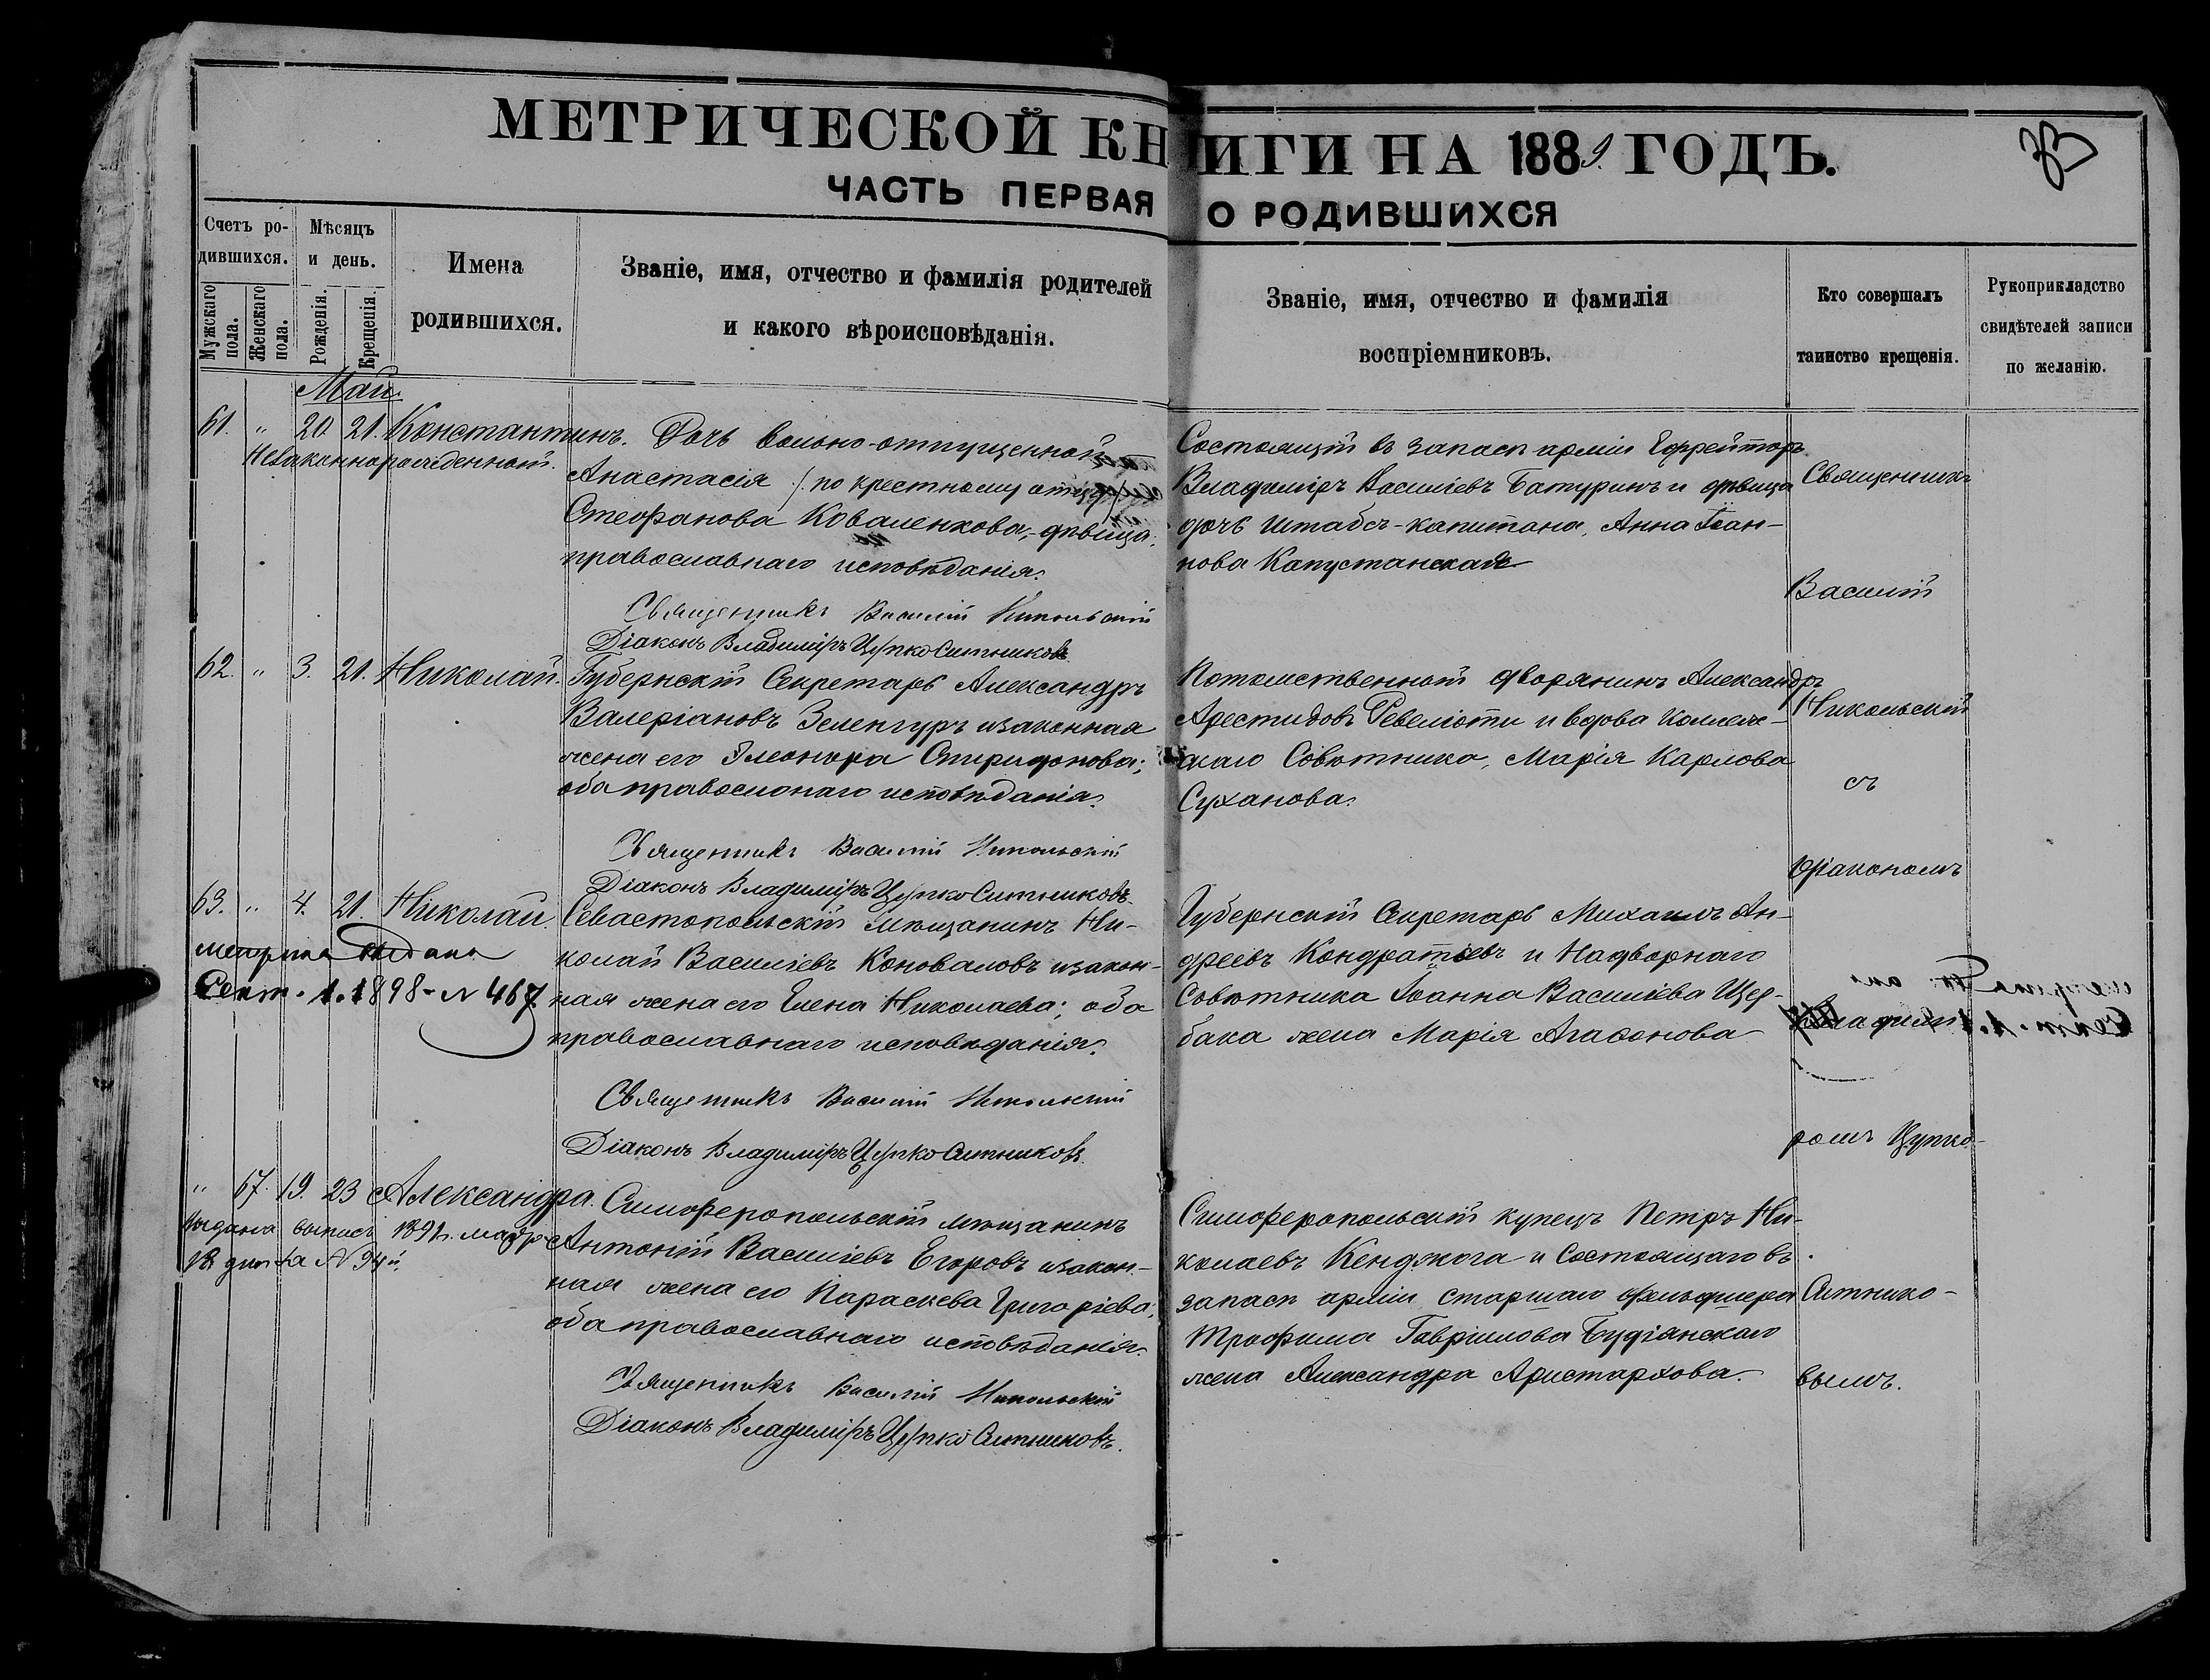 МЕТРИЧЕСКОЙ КНИГИ НА 1889. ГОДЪ.
ЧАСТЬ ПЕРВАЯ О РОДИВШИХСЯ
Счетъ родившихся.
Мужскаго пола.
Женскаго пола.
Мѣсяцъ и день.
Рожденія.
Крещенія.
Имена
родившихся.
Званіе, имя, отчество и фамилія родителей
и какого вѣроисповѣданія.
Званіе, имя, отчество и фамилія
воспріемниковъ.
Кто совершалъ
таинство крещенія.
Рукоприкладство
свидѣтелей записи
по желанію.
Май.
61. " 20. 21. Константинъ.
Незаконнорожденный.
Дочь вольно-отпущенной
Анастасія /по крестному отцу/
Стефанова Коваленкова, дѣвица,
православнаго исповѣданія.
Священникъ Василій Никольскій
Діаконъ Владиміръ Цупко Ситниковъ
Состоящій въ запасѣ арміи Ефрейторъ
Владиміръ Василіевъ Батуринъ и дѣвица
дочь Штабсъ-капитана, Анна Іоан-
нова Капустанская
62. " 3. 21. Николай.
Губернскій Секретарь Александръ
Валеріановъ Зеленгуръ и законная
жена его Элеонора Спиридонова;
оба православнаго исповѣданія.
Священникъ Василій Никольскій
Діаконъ Владиміръ Цупко Ситниковъ
Потомственный дворянинъ Александръ
Арестидовъ Ревеліоти и вдова Коллеж-
скаго Совѣтника, Марія Карлова
Суханова.
63. " 4. 21. Николай.
метрика выдана
Сент. 1. 1898 - N 467
Севастопольскій мѣщанинъ Ни-
колай Василіевъ Коноваловъ и закон-
ная жена его Елена Николаева; оба
православнаго исповѣданія.
Священникъ Василій Никольскій
Діаконъ Владиміръ Цупко Ситниковъ
Губернскій Секретарь Михаилъ Ан-
дреевъ Кондратьевъ и Надворнаго
Совѣтника Іоанна Василіева Щер-
бака жена Марія Агафонова
" 67. 19. 23 Александра.
Выдана выпись 1891г.
18 дня за N 94
Симферопольскій мѣщанинъ
Антоній Василіевъ Егоровъ и закон-
ная жена его Параскева Григоріева,
оба православнаго исповѣданія.
Священникъ Василій Никольскій
Діаконъ Владиміръ Цупко Ситниковъ.
Симферопольскій купецъ Петръ Ни-
колаевъ Кенджога и Состоящаго въ
запасѣ арміи старшаго фельдшера
Трофима Гавріилова Будіянскаго
жена Александра Аристархова.
Священникъ
Василій
Никольскій
съ
діакономъ
Владимі-
ромъ Цупко-
Ситнико-
вымъ.